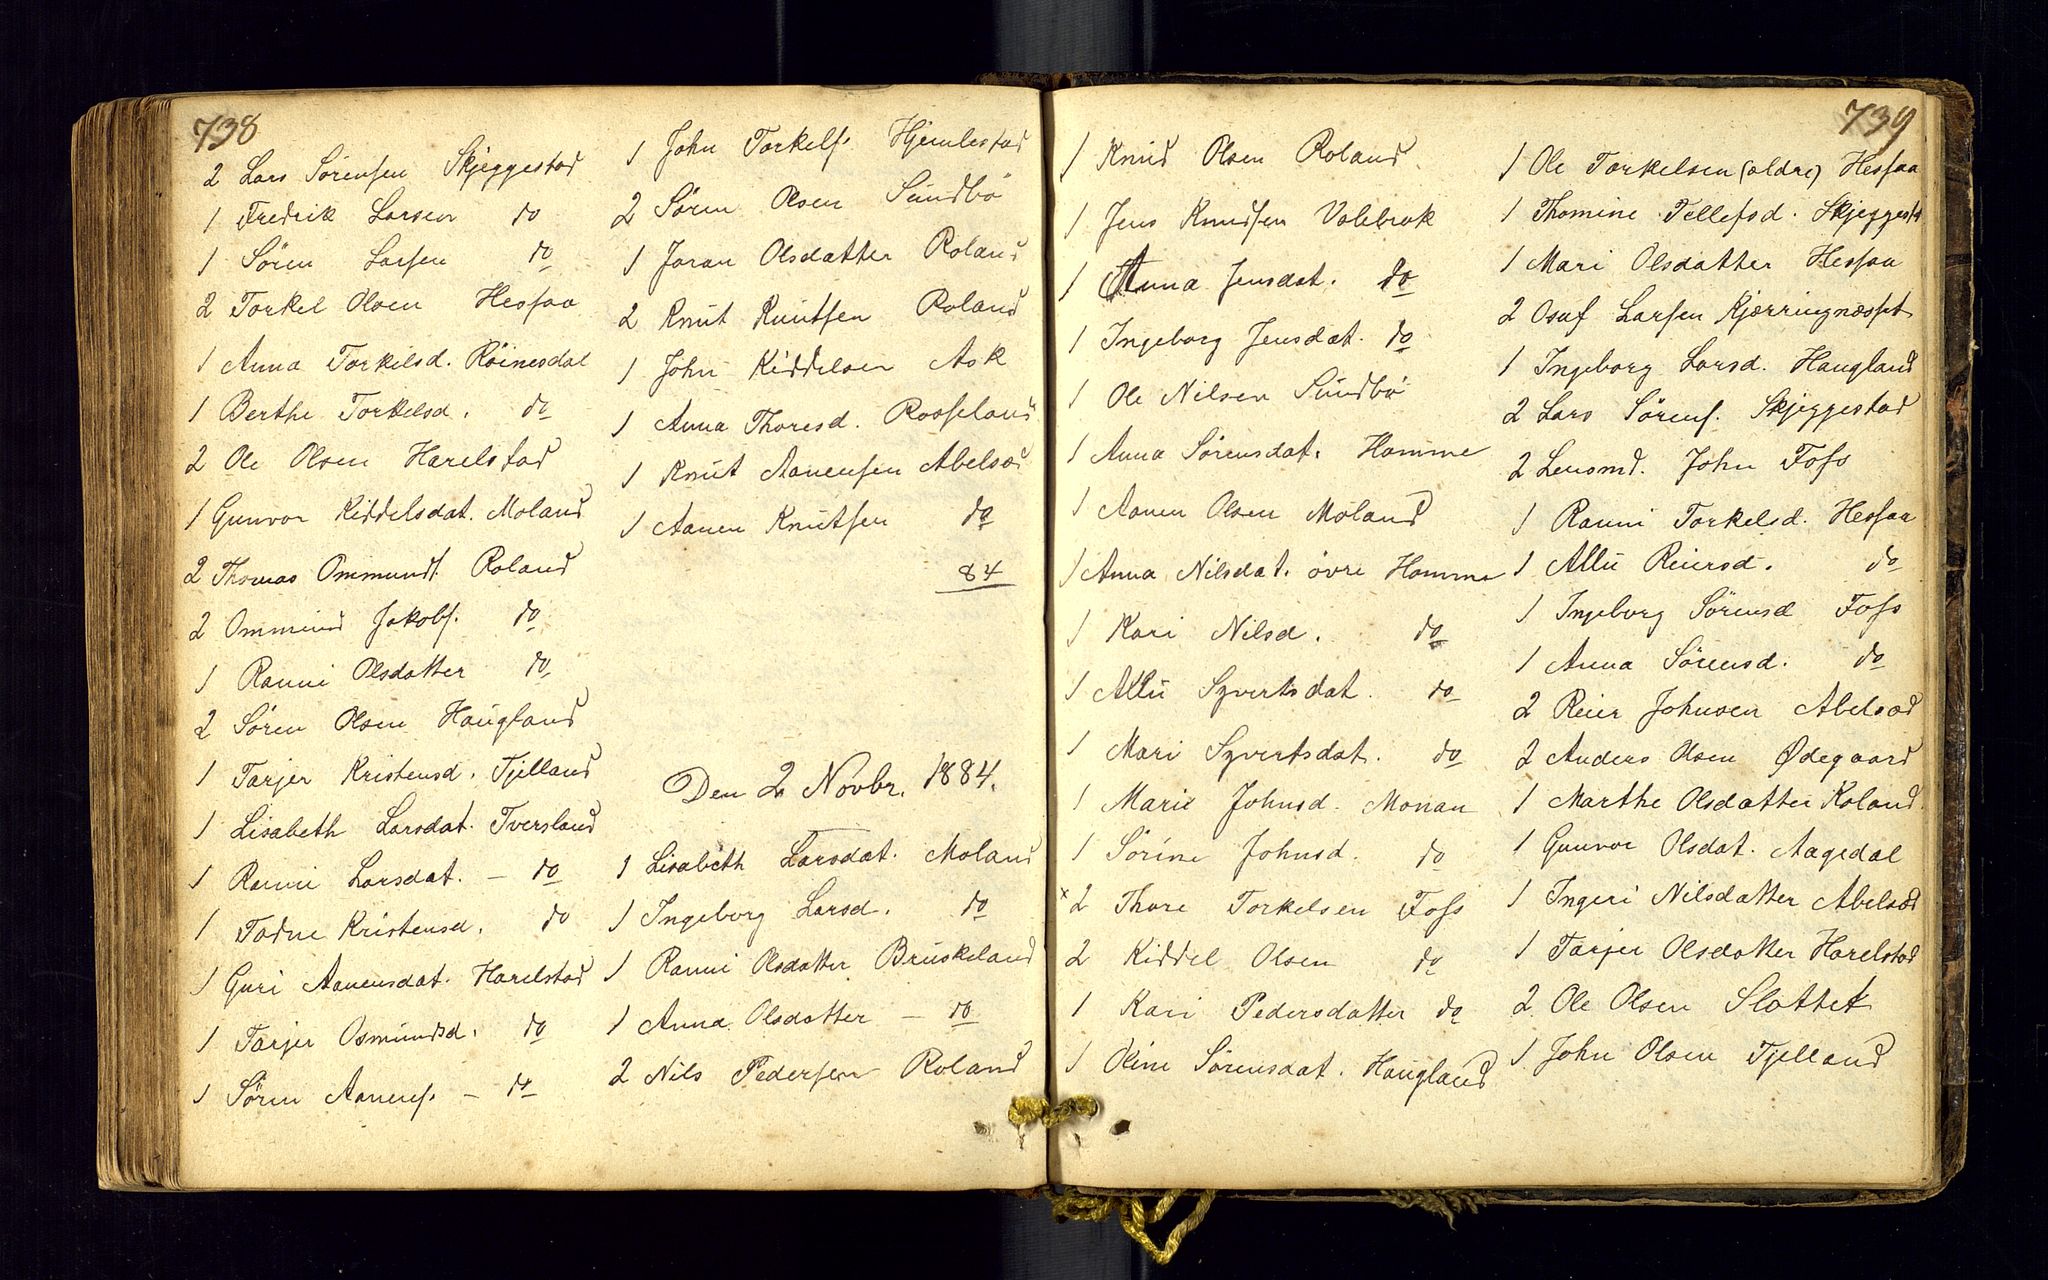 738
2 Lars Sørensen Skjeggestad
1 Fredrik Larsen do
1 Sören Larsen do
2 Torkel Olsen Hesfaa
1 Anna Torkilsd. Röinesdal
1 Berthe Torkelsd. do
2 Ole Olsen Harelstad
1 Gunvor Kiddelsdat. Moland
2 Thomas Ommunds. Roland
2 Ommund Jakobs. do
1 Ranni Olsdatter do
2 Sören Olsen Haugland
1 Tarjer Kristensd. Fjelland
1 Lisabeth Larsdat. Tversland
1 Ranni Larsdat. — do
1 Todne Kristensd. do
1 Guri Aanensdat. Harelstad
1 Tarjer Osmundsd. do
1 Sören Aanens. — do
1 John Torkels. Hjemlestad
2 Sören Olsen Sundbö
1 Joran Olsdatter Roland
2 Knut Knutsen Roland
1 John Kiddelsen Ask
1 Anna Thoresd. Rosseland
1 Knut Aanensen Abelsæd
1 Aanen Knutsen do
84
Den 2 Novbr. 1884.
1 Lisabeth Larsdat. Moland
1 Ingeborg Larsd. do
1 Ranni Olsdatter Bruskeland
1 Anna Olsdatter — do
2 Nils Pedersen Roland
739
1 Knud Olsen Roland
1 Jens Knudsen Valebrok
1 Anna Jensdat. do
1 Ingeborg Jensdat. do
1 Ole Nilsen Sundbö
1 Anna Sörensdat. Homme
1 Aanen Olsen Moland
1 Anna Nilsdat. övre Homme
1 Kari Nilsd. do
1 Allu Syvertsdat. do
1 Mari Syvertsdat. do
1 Marie Johnsd. Monan
1 Sörine Johnsd. do
x 2 Thore Torkelsen Foss
2 Kiddel Olsen do
1 Kari Pedersdatter do
1 Oline Sörensdat. Haugland
1 Ole Torkelsen (ældre) Hesfaa
1 Thomine Tellefsd. Skjeggest
1 Mari Olsdatter Hesfaa
2 Osuf Larsen Kjærringnæsset
1 Ingeborg Larsd. Haugland
2 Lars Sörens. Skjeggestad
2 Lensmd. John Foss
1 Ranni Torkelsd. Hesfaa
1 Allu Reiersd. do
1 Ingeborg Sörensd Foss
1 Anna Sörensd. do
2 Reier Johnsen Abelsæd
2 Anders Olsen Ødegaard
1 Marthe Olsdatter Roland
1 Gunvor Olsdat. Aagedal
1 Ingeri Nilsdatter Abelsæd
1 Tarjer Olsdatter Harelstad
2 Ole Olsen Slottet
1 John Olsen Fjelland